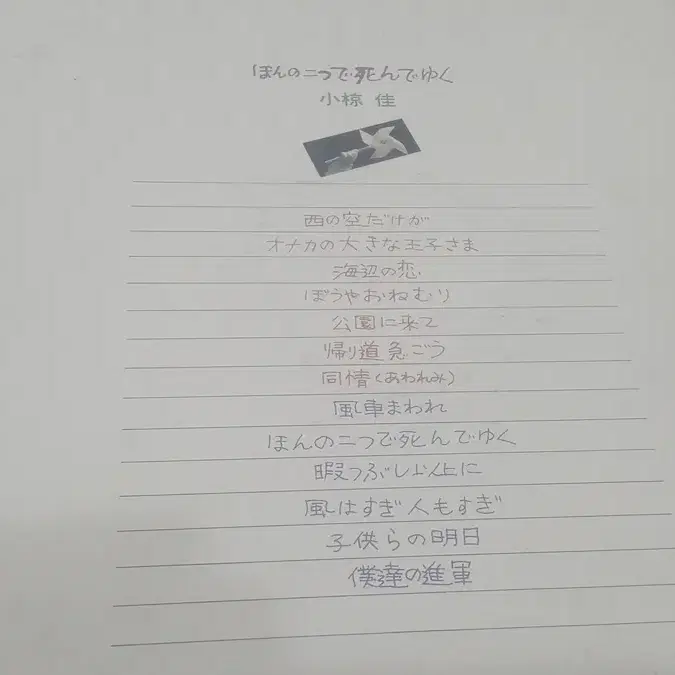 ほんの二つで死んでゆく
小椋 佳
西の空だけが
オナカの大きな王子さま
海辺の恋
ぼうやおねむり
公園に来て
帰り道急ごう
同情(あわれみ)
風車まわれ
ほんの二つで死んでゆく
暇つぶし以上に
風はすぎ人もすぎ
子供らの明日
僕達の進軍